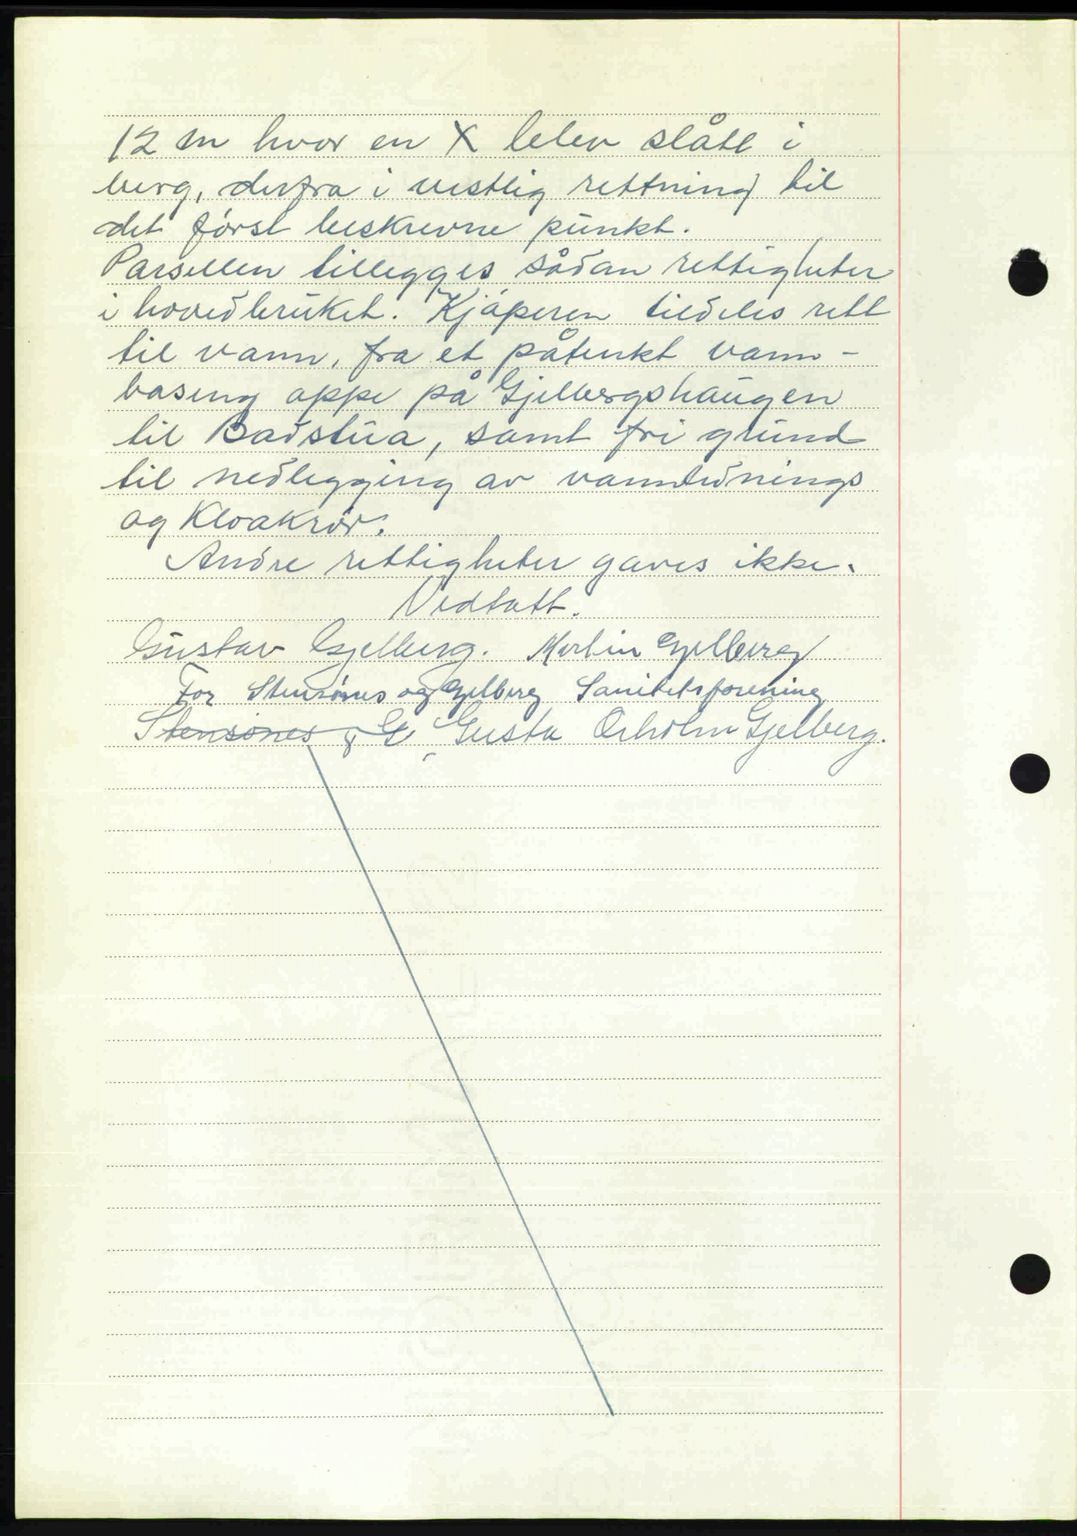 12 m hvor en X blev slått i
berg, derfra i vestlig rettning til
det først beskrevne punkt.
Parsellen tillegges sådan rettigheter
i hovedbruket. Kjøperen tildeles rett
til vann, fra et påtenkt vann-
baseng oppe på Gjelbergshaugen
til Badstua, samt fri grund
til nedlegging av vannlednings
og Kloakrør.
Andre rettigheter gaves ikke.
Vedtatt.
Gustav Gjelberg. Martin Gjelberg
For Stensønes og Gjelberg Sanitetsforening
Stensønes & G Gusta Orholm Gjelberg.